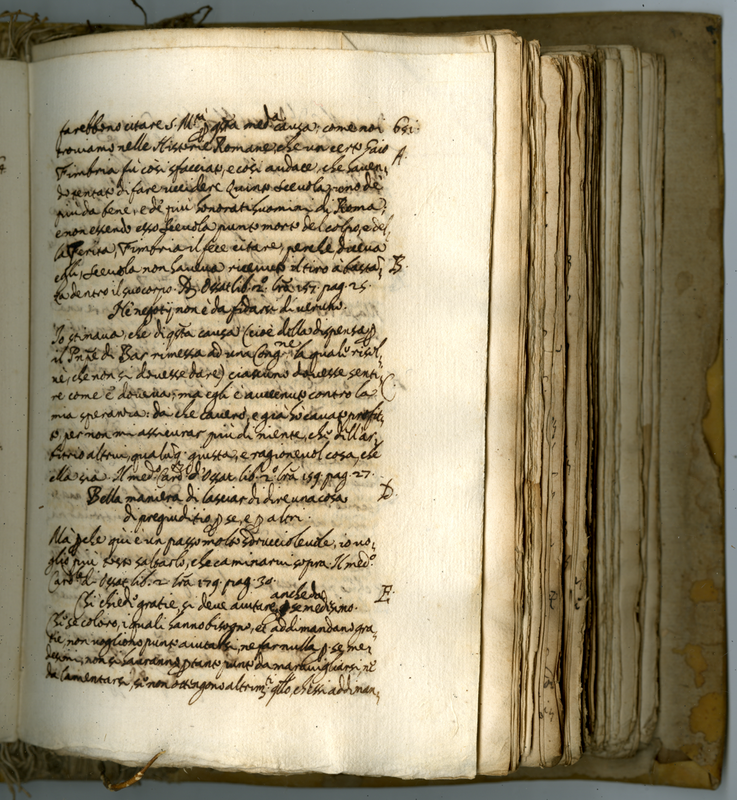 farebbono citare S. M.tà p q.sta med.a causa, come noi 651.
trouiamo nelle Historie Romane, che un certo Gaio
A.
Fimbria fù così sfacciato, e così audace, che hauen-
do tentato di fare uccidere Quinto Sceuola, uno de'
più da bene, e de' più honorati huomini di Roma;
e non essendo esso Sceuola punto morto del colpo, e del-
la ferita, Fimbria il fece citare, perche diceua
egli, Sceuola non haueua riceuuto il tiro à basta-
B.
ta dentro il suo corpo. Ossat lib. 2.o lra 157. pag. 25.
non è da fidarsi di veruno.
Io stimaua, che di q.sta causa (cioè della dispensa p
il Pn.pe di Bar rimessa ad una Cong.ne la quale risol-
uè, che non si douesse dare) ciascuno douesse senti-
C.
re come è douuto; ma egli è auuenuto contro la
mia speranza: da che cauerò, e già hò cauato profit-
to, per non mi assicurar più di niente, che di l'ar-
bitrio altrui, qualq. giusta, e ragioneuol cosa, che
ella sia. Il med.o Card. d'Ossat lib. 2.o lra 159. pag. 27.
D.
Bella maniera di lasciar di dire una cosa
di pregiuditio p se, e p altri.
Mà p che qui è un passo molto sdruccioleuole, io uo-
glio più tosto saltarlo, che caminarui sopra. Il med.o
Card. d'Ossat lib. 2. lra 179. pag. 30.
E.
Chi chiede gratie, si deve aiutare anche da p se medesimo.
Che se coloro, i quali hanno bisogno, et addimandano gra-
tie, non vogliono punto aiutarsi, ne far nulla p se me-
desimi, non si haueranno p tanto punto da marauigliarsi nè
da lamentarsi, se non ottengono altrim.ti q.llo, che essi addiman-